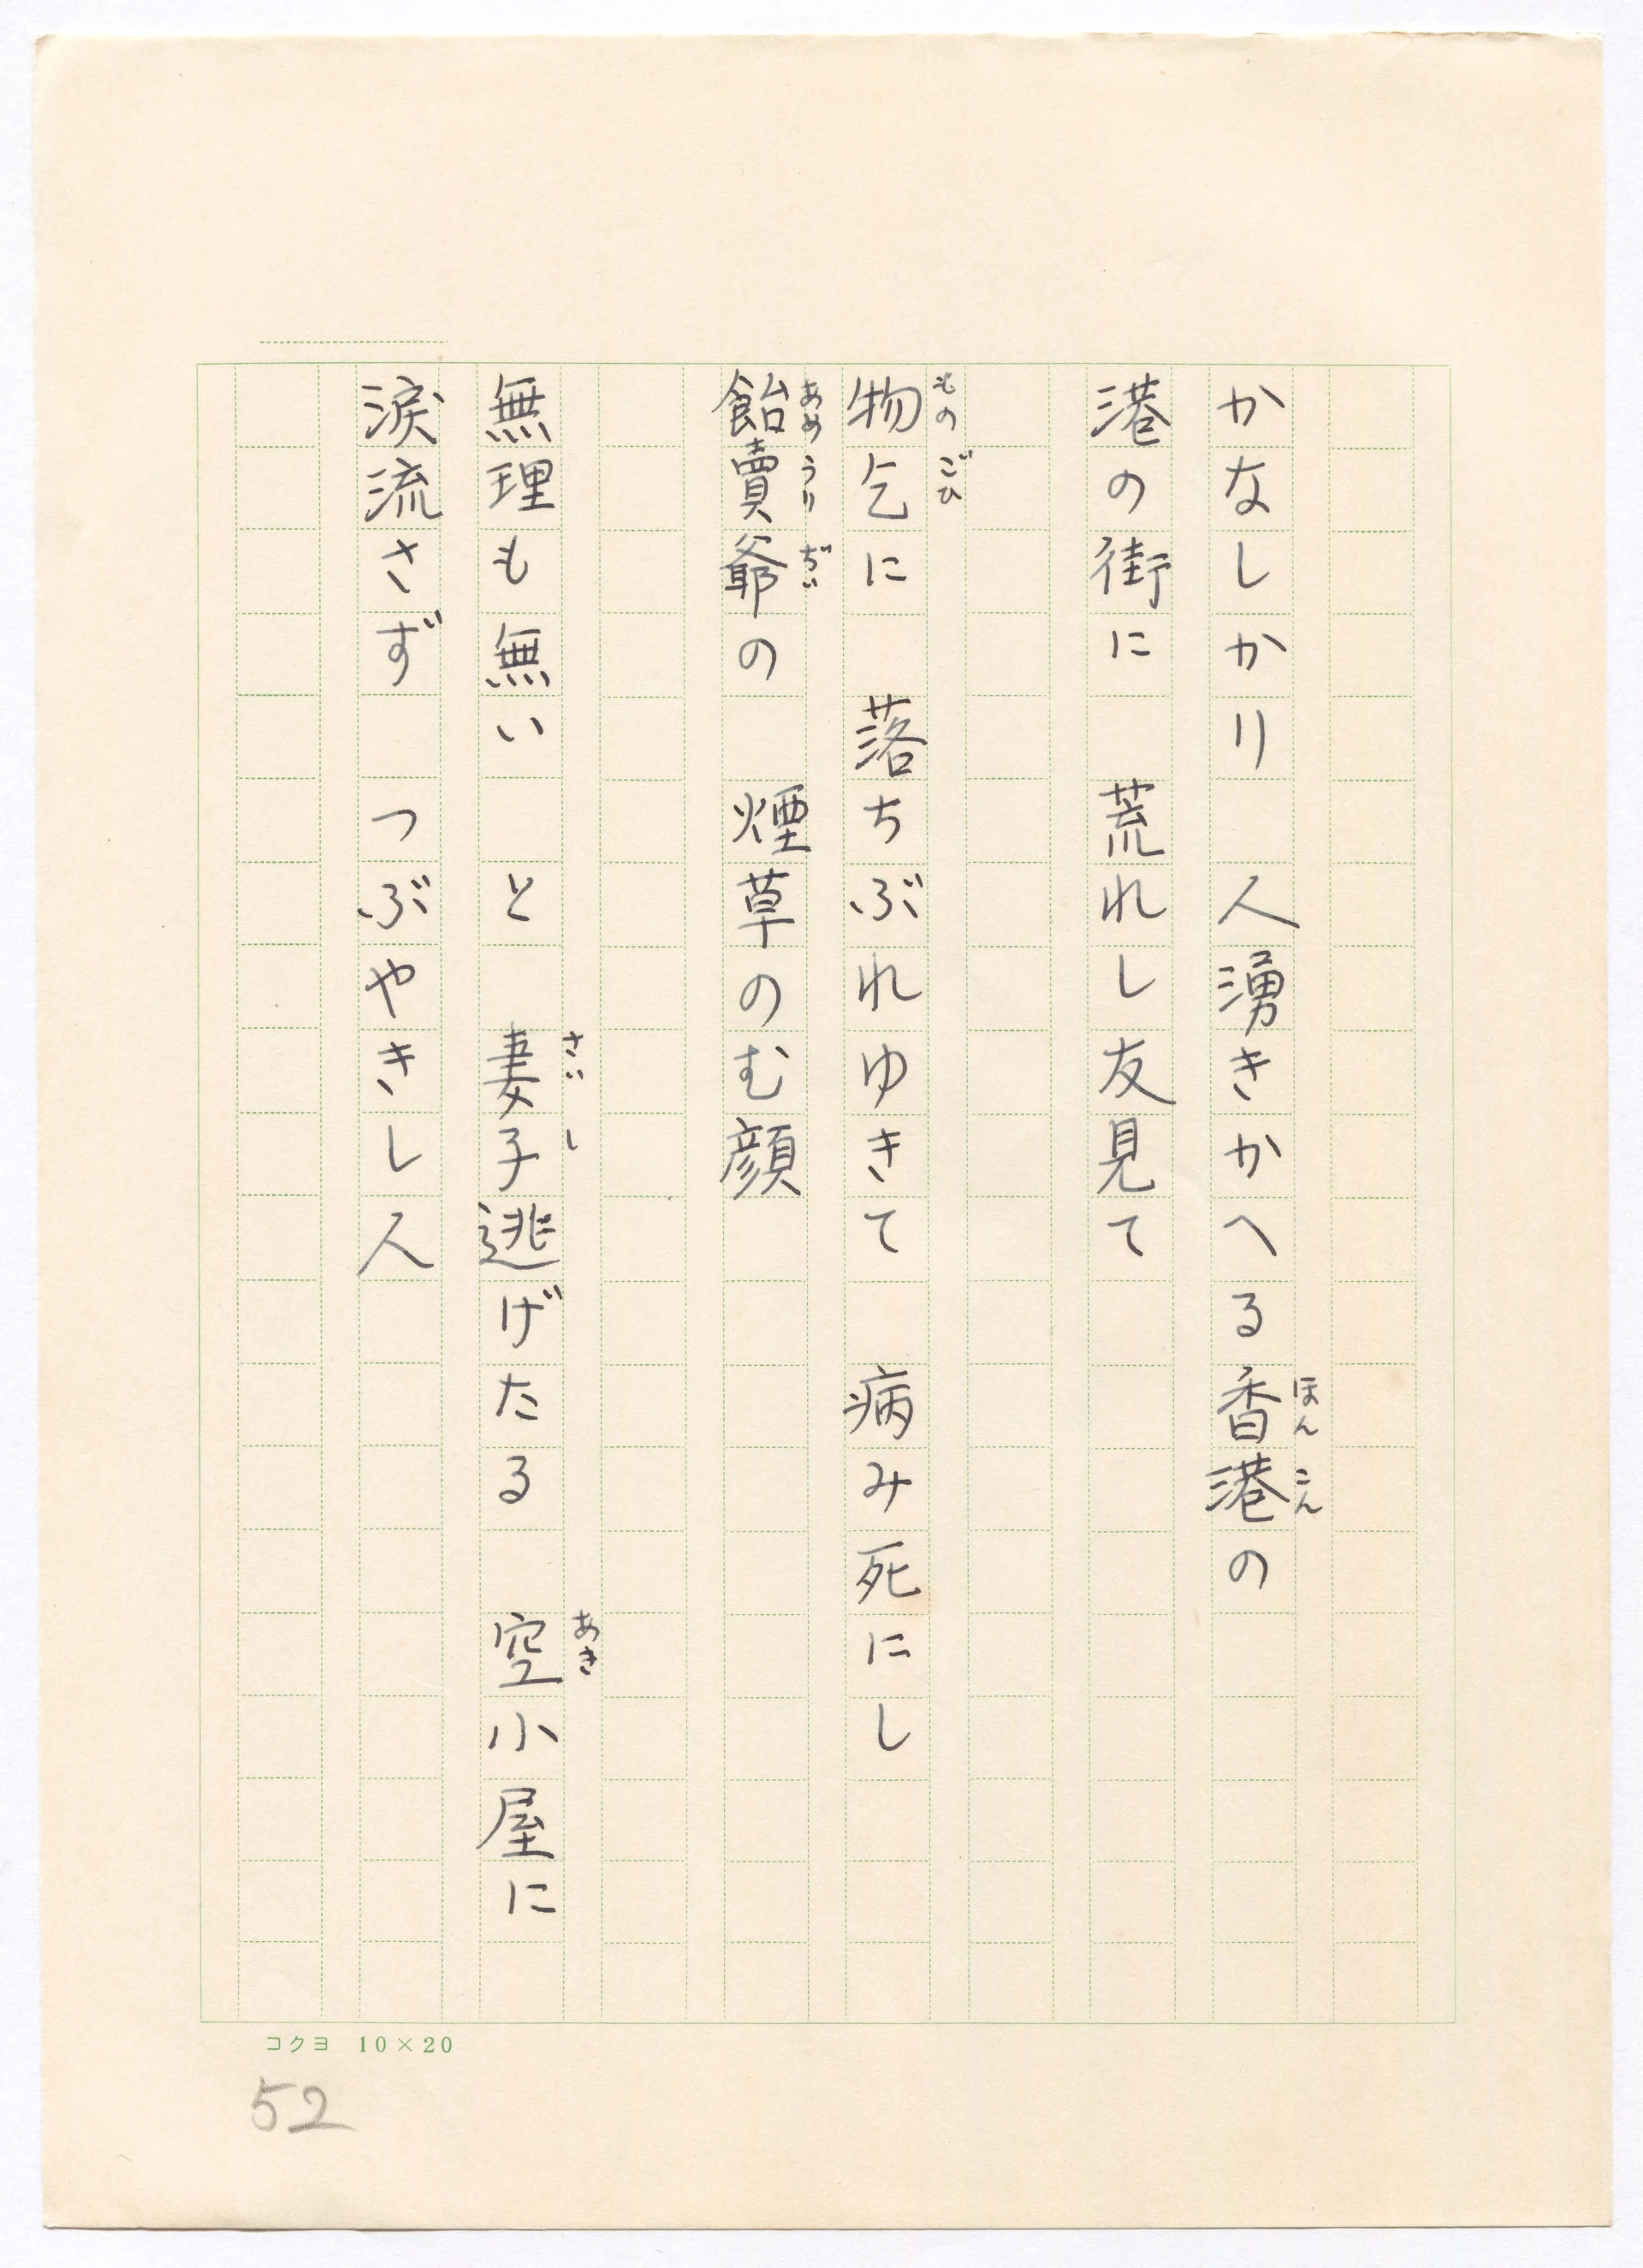 かなしかり　人湧きかへる香港の
ほんこん
港の街に　荒れし友見て
物乞に　落ちぶれゆきて　病み死にし
ものごひ
飴賣爺の　煙草のむ顔
あめうりぢい
無理も無い　と　妻子逃げたる　空小屋に
さいし　あき
涙流さず　つぶやきし人
コクヨ　10×20
52